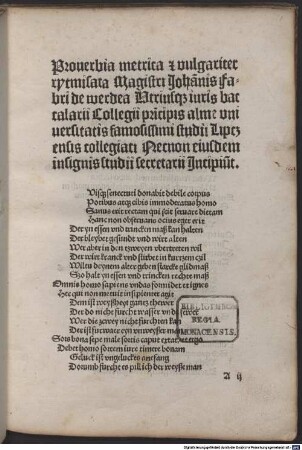 Prouerbia metrica ⁊ vulgariter
rytmisata Magistri Joha̅nis Fa
bri de werdea Vtriusqꝫ iuris bac
calarii Collegii pri̅cipis alme vni
uersitatis famosissimi studii Liptz
ensis collegiati Necnon eiusdem
insignis studii secretarii Incipiu̅t.
Visqꝫ senectuti donabit debile corpus
Potibus atqꝫ cibis immoderatus homo
Sanus erit rectam qui scit seruare dietam
Hanc non obseruans ocius eger erit
Der yn essen vnd trincken maß ket halden
Der bleybet gesundt vnd wirt alden
Wer aber in den zweyen obertreten wil
Der wirt kranck vnd stirbt in kurtzem czil
Wiltu deynem alter geben starcke glidmaß
So halt yn essen vnd trincken rechte maß
Omnis homo sapiens vndas formidet et ignes
Hec qui non metuit insipienter agit
Dem ist weyßheyt gantz thewer
Der do nicht fürcht wasser vnd fewer
Wer die zewey nicht fürchten kan
Der ist fürware eyn vnweyßer man
Sors bona sepe male sortis caput extat et ergo
Debet homo sortem iure timere bonam
Geluck ist vngeluckes anefang
Dorumb fürcht es pillich der weyße man
A ij
BIBLIOTHECA
REGIA
MONACENSIS.